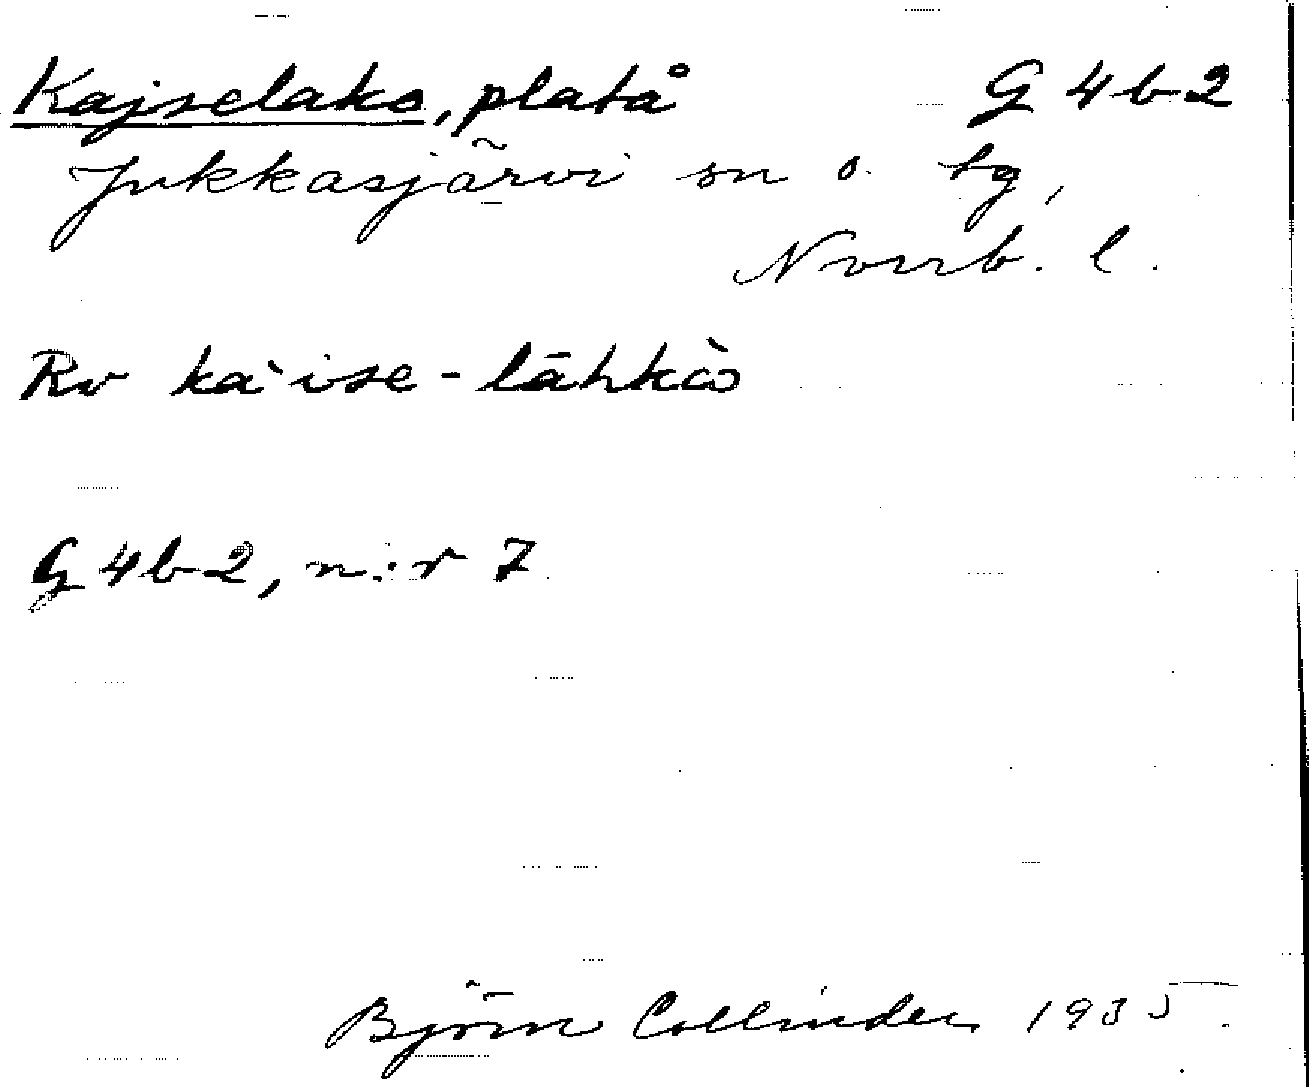 Kajselako, platå G 4b2
Jukkasjärvi sn o. tg,
Norrb. l.
Rv ka`ise-lāhkò
G 4b2, n:r 7
Björn Collinder 1935.